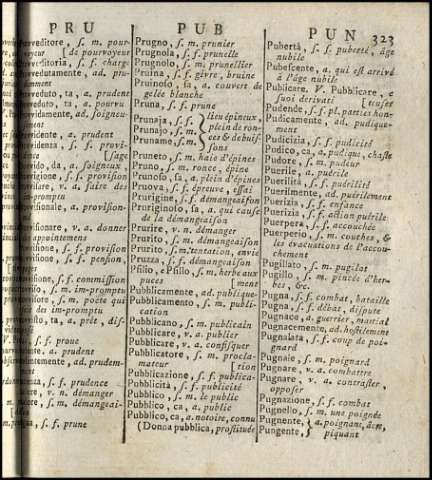 PRU
PUB
PUN
323
Provveditore, s. m. pour-
[de pourvoyeur
s. f. charge
Provvedutamente, ad. pru-
damment
ta, a. prudent
ta, a. pourvu
ad. soigneu-
a. prudent
s. f. provi-
[sage
da, a. soigneux,
v. a. faire des
impromptu
a. provision-
v. a. donner
appointemens
s. f. provision
s. f. pension,
s. f. commission
s. m. impromptu
s. m. poëte qui
des impromptu
ta, a. prêt, dis-
s. f. proue
a. prudent
ad. prudem-
ment
s. f. prudence
v. n. démanger
s. m. démangeai-
[son
s. f. prune
Prugno, s. m. prunier
Prugnola, s. f. prunelle
Prugnolo, s. m. prunellier
Pruina, s. f. givre, bruine
Pruinoso, sa, a. couvert de
gelée blanche
Pruna, s. f. prune
Prunaja, s. f.
Prunajo, s. m.
Pruname, s. m.
lieu épineux,
plein de ron-
ces & de buis-
sons
Pruneto, s. m. haie d'épines
Pruno, s. m. ronce, épine
Prunoso, sa, a. plein d'épines
Pruova, s. f. épreuve, essai
Prurigine, s. f. démangeaison
Pruriginoso, sa, a. qui cause
de la démangeaison
Prurire, v. n. démanger
Prurito, s. m. démangeaison
Prurito, s. m. tentation, envie
Pruzza, s. f. démangeaison
Psilio, e Psillo, s. m. herbe aux
puces
[ment
Pubblicamente, ad. publique-
Pubblicamento, s. m. publi-
cation
Pubblicano, s. m. publicain
Pubblicare, v. a. publier
Pubblicare, v. a. confisquer
Pubblicatore, s. m. procla-
mateur
[tion
Pubblicazione, s. f. publica-
Pubblicità, s. f. publicité
Pubblico, s. m. le public
Pubblico, ca, a. public
Pubblico, ca, a. notoire, connu
(Donna pubblica, prostituée
Pubertà, s. f. puberté, âge
nubile
Pubescente, a. qui est arrivé
à l'âge nubile
Publicare, V. Pubblicare, e
suoi derivati
Pudende, s. f. pl. parties hon-
[teuses
Pudicamente, ad. pudique-
ment
Pudicizia, s. f. pudicité
Pudico, ca, a. pudique, chaste
Pudore, s. m. pudeur
Puerile, a. puérile
Puerilità, s. f. puérilité
Puerilmente, ad. puérilement
Puerizia, s. f. enfance
Puerizia, s. f. action puérile
Puerpera, s. f. accouchée
Puerperio, s. m. couches, &
les évacuations de l'accou-
chement
Pugillato, s. m. pugilat
Pugillo, s. m. pincée d'her-
bes, &c.
Pugna, s. f. combat, bataille
Pugna, s. f. débat, dispute
Pugnace, a. guerrier, martial
Pugnacemente, ad. hostilement
Pugnalata, s. f. coup de poi-
gnard
Pugnale, s. m. poignard
Pugnare, v. a. combattre
Pugnare, v. a. contraster,
opposer
Pugnazione, s. f. combat
Pugnello, s. m. une poignée
Pugnente,
Pungente,
a. poignant, âcre,
piquant